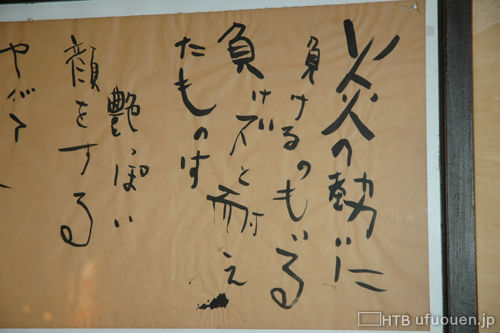 炎の勢いに
負けるのもいる
負けズと耐え
たものす
艶っぽい
顔をする
やがて
HTB ufuouen.jp